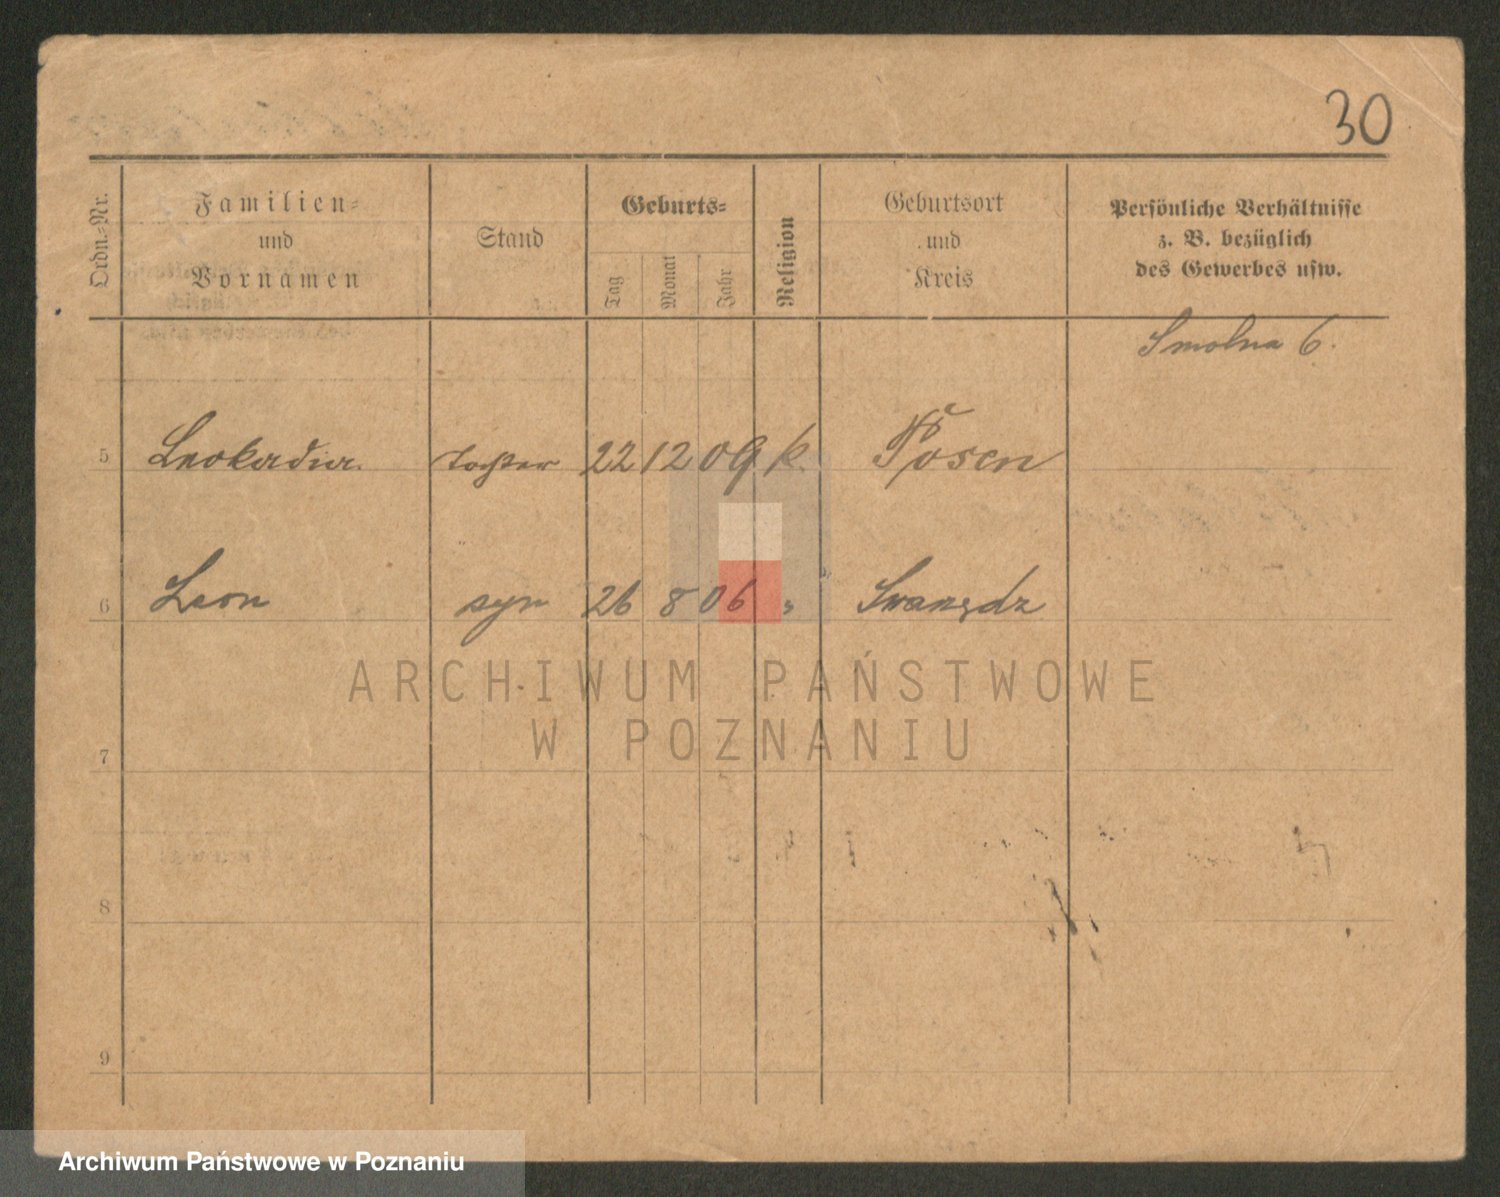 30
Ordn.-Nr.
Familien-
und
Vornamen
Stand
Geburts-
Tag
Monat
Jahr
Religion
Geburtsort
und
Kreis
Persönliche Verhältnisse
z. B. bezüglich
des Gewerbes usw.
Smolna 6.
5 Leokadia Tochter 22 12 09 k. Posen
6 Leon syn 26 8 06 " Swarzędz
ARCHIWUM PAŃSTWOWE
W POZNANIU
7
8
9
Archiwum Państwowe w Poznaniu